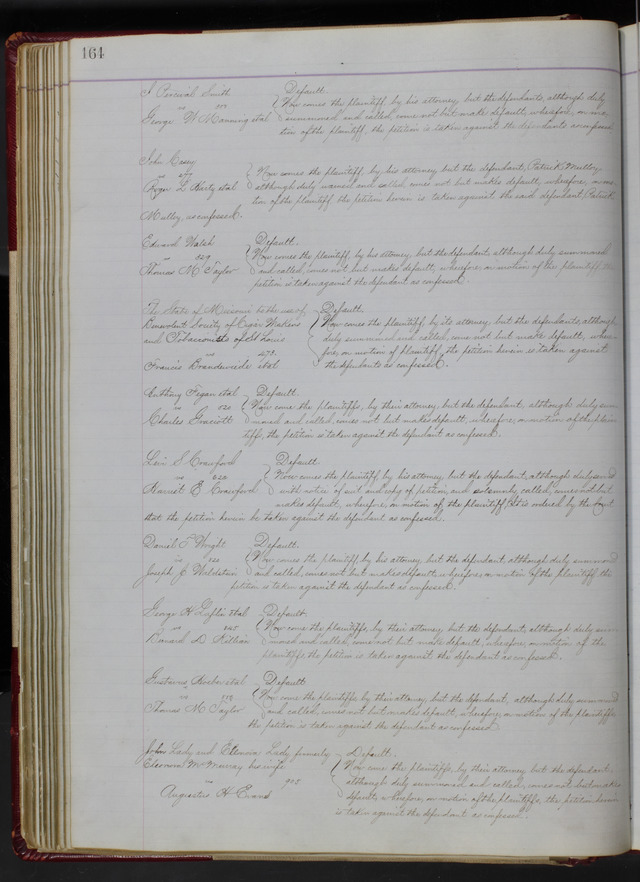 164
J Percival Smith } Default.
vs { Now comes the plaintiff, by his attorney, but the defendants, although duly
George W Manning et al summoned and called, come not but make default, wherefore, on mo
tion of the plaintiff, the petition is taken against the defendants as confessed
John Casey
vs { Now comes the plaintiff, by his attorney but the defendant, Patrick Mulloy,
Roger L et al although duly warned and called, comes not but makes default, wherefore, on mo
tion of the plaintiff the petition herein is taken against the said defendant Patrick
Mulloy, as confessed.
Edward Walsh } Default.
vs 829 { Now comes the plaintiff, by his attorney, but the defendant, although duly summoned
Thomas M Taylor and called, comes not but makes default, wherefore, on motion of the plaintiff, the
petition is taken against the defendant as confessed.
The State of Missouri to the use of } Default.
Benevolent Society of Cigar Makers { Now comes the plaintiff, by its attorney, but the defendants, although
and Tobacconists of St Louis duly summoned and called, come not but make default, where
vs fore, on motion of plaintiff, the petition herein is taken against
Francis et al the defendants as confessed.
Anthony Fegan et al } Default.
vs { Now come the plaintiffs, by their attorney, but the defendant, although duly sum
Charles Gratiott moned and called, comes not but makes default, wherefore, on motion of the plain
tiffs, the petition is taken against the defendant as confessed.
Levi S Crawford } Default.
vs { Now comes the plaintiff, by his attorney, but the defendant, although duly served
Harriet E Crawford with notice of suit and copy of petition, and solemnly called, comes not but
makes default, wherefore, on motion of the plaintiff, It is ordered by the Court
that the petition herein be taken against the defendant as confessed.
Daniel T Wright } Default.
vs { Now comes the plaintiff, by his attorney, but the defendant, although duly summoned
Joseph J Waldstein and called, comes not but makes default, wherefore, on motion of the plaintiff, the
petition is taken against the defendant as confessed.
George H et al } Default
vs { Now come the plaintiffs, by their attorney, but the defendant, although duly sum
D Killian moned and called, comes not but makes default, wherefore, on motion of the
plaintiffs, the petition is taken against the defendant as confessed.
Gustavus et al } Default
vs { Now come the plaintiffs, by their attorney, but the defendant, although duly summoned
Thomas M Taylor and called, comes not but makes default, wherefore, on motion of the plaintiffs
the petition is taken against the defendant as confessed
John Lady and Elenora Lady formerly } Default.
Elenora McMurray his wife { Now come the plaintiffs, by their attorney but the defendant,
vs 905 although duly summoned and called, comes not but makes
Augustus H Evans default, wherefore, on motion of the plaintiffs, the petition herein
is taken against the defendant as confessed.